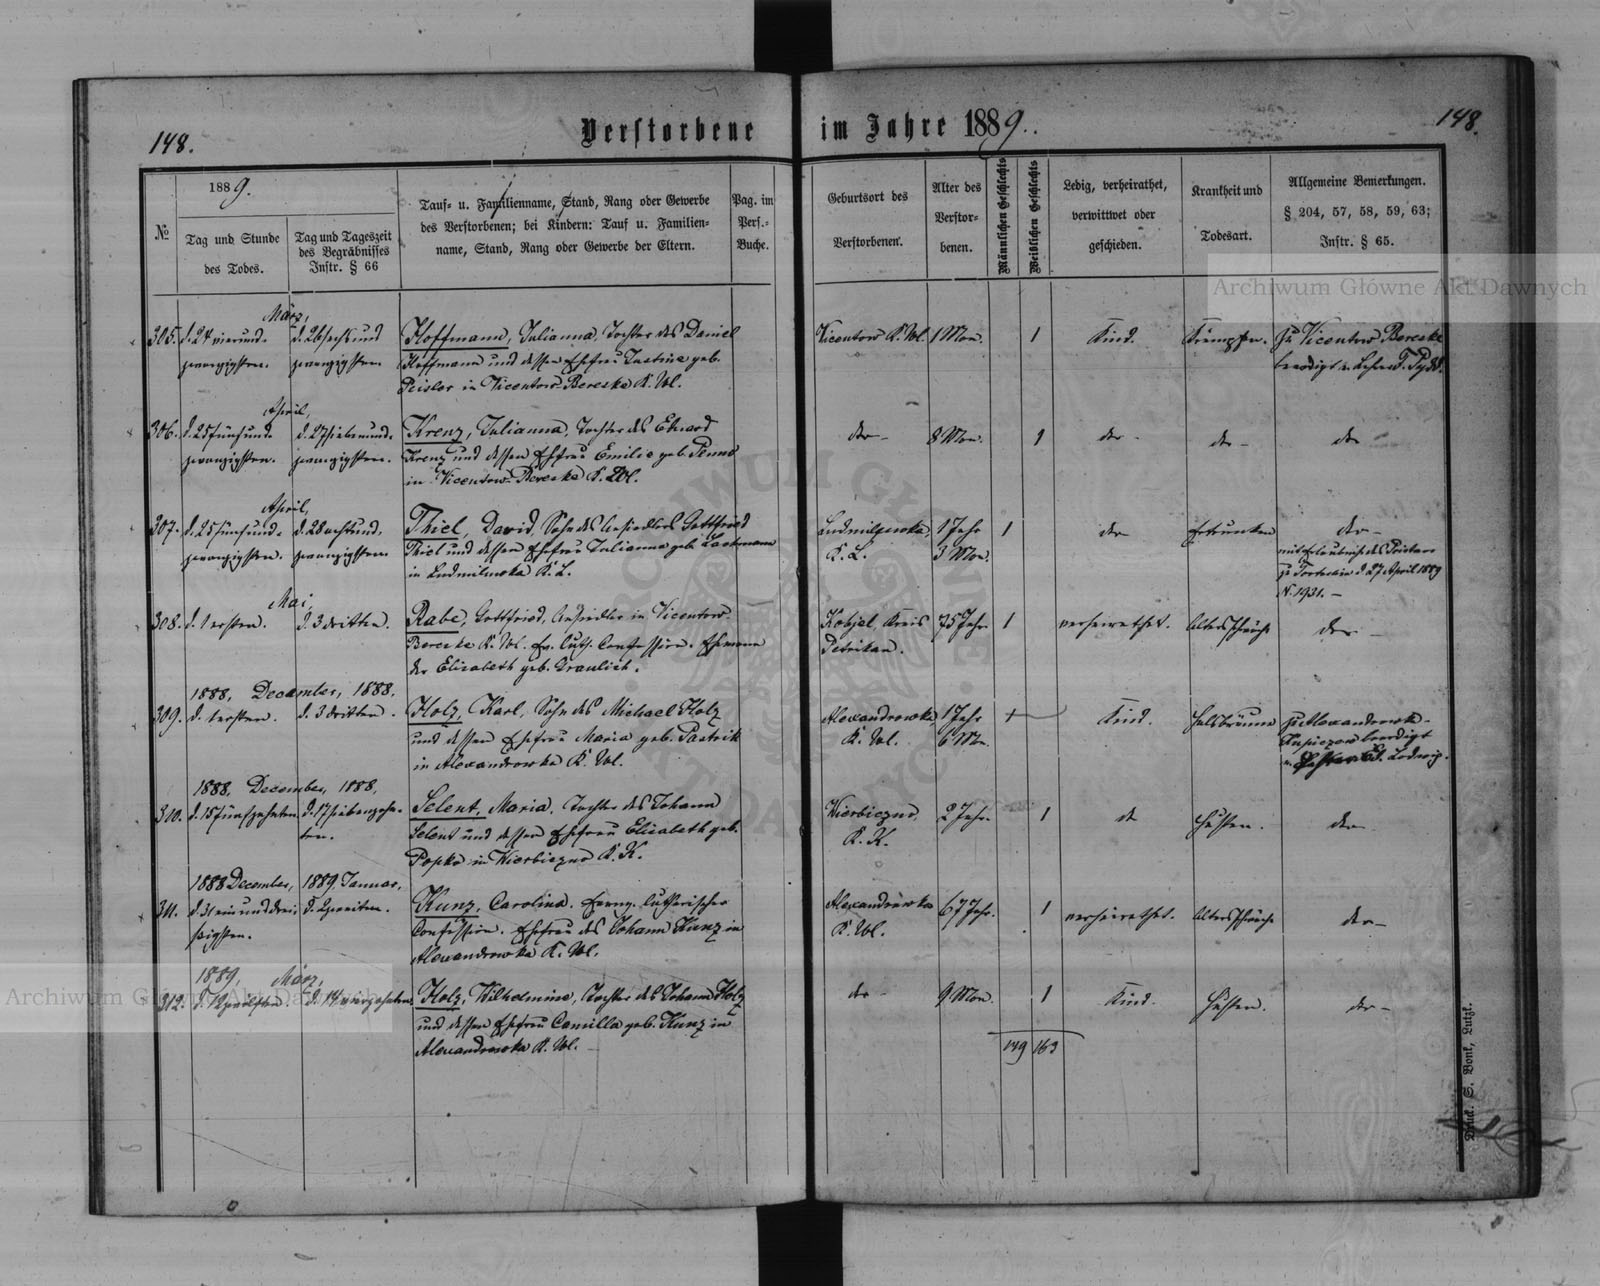 148.
Verstorbene im Jahre 1889.
148.
№
1889.
Tag und Stunde
des Todes.
Tag und Tageszeit
des Begräbnisses
Instr. § 66
Tauf- u. Familienname, Stand, Rang oder Gewerbe
des Verstorbenen; bei Kindern: Tauf u. Familien-
name, Stand, Rang oder Gewerbe der Eltern.
Pag. im
Pers.-
Buche.
Geburtsort des
Verstorbenen.
Alter des
Verstor-
benen.
Männlichen Geschlechts
Weiblichen Geschlechts
Ledig, verheirathet,
verwittwet oder
geschieden.
Krankheit und
Todesart.
Allgemeine Bemerkungen.
§ 204, 57, 58, 59, 63;
Instr. § 65.
März,
305. d. 24 vierund-
zwanzigsten.
d. 26 sechsund
zwanzigsten.
Hoffmann, Julianna, Tochter des Daniel
Hoffmann und dessen Ehefrau Justine geb.
Peisler in Vicentow Bereske K. Wl.
Vicentow K. Wl.
1 Mon.
1
Kind.
Krämpfen.
Zu Vicentow Bereske
beerdigt v.
April,
306. d. 25 fünfund-
zwanzigsten.
d. 27 siebenund-
zwanzigsten.
Krenz, Julianna, Tochter des Eduard
Krenz und dessen Ehefrau Emilie geb. Penno
in Vicentow Bereske K. Wl.
der-
8 Mon.
1
der-
der-
der
April,
307. d. 25 fünfund-
zwanzigsten.
d. 28 achtund-
zwanzigsten
Thiel, David, Sohn des Ansiedlers Gottfried
Thiel und dessen Ehefrau Julianna geb.
in Ludmilmoka K. L.
K. L.
1 Jahr
3 Mon.
1
der
Ertrunken
der-
mit Erlaubniß des Pristaw
zu Tortschin d. 27 April 1889
N. 1931.-
Mai,
308. d. 1 ersten.
d. 3 dritten.
Rabe, Gottfried, Ansiedler in Vicentow-
Bereske K. Wl. Ev. luth. Confession. Ehemann
der Elisabeth geb. Draulich.
Kobjel, Kreis
Petrikau.
75 Jahr.
1
verheirathet.
Altersschwäche
der-
1888, December, 1888.
309. d. 1 ersten.
d. 3 dritten.
Holz, Karl, Sohn des Michael Holz
und dessen Ehefrau Maria geb. Pastrik
in Alexandrowka K. Wl.
Alexandrowka
K. Wl.
1 Jahr
6 Mon.
+
Kind.
Halsbräune
zu Alexandrowka-
beerdigt
v. Ludwig.
1888, December, 1888,
310. d. 15 fünfzehnten
d. 17 siebenzehn-
ten.
Selent, Maria, Tochter des Johann
Selent und dessen Ehefrau Elisabeth geb.
Popko in Wierbiczno K. K.
Wierbiczno
K. K.
2 Jahr.
1
de
Husten.
der
1888 December, 1889. Januar.
311. d. 31 einunddrei-
ßigsten.
d. 2 zweiten.
Kunz, Carolina. Evang. lutherischer
Confession. Ehefrau des Johann Kunz in
Alexandrowka K. Wl.
Alexandrowka
K. Wl.
67 Jahr.
1
verheirathet.
Altersschwäche
der-
1889, März,
312. d. 12 zwölften.
d. 14 vierzehnten.
Holz, Wilhelmine, Tochter des Johann Holz
und dessen Ehefrau Camilla geb. Kunz in
Alexandrowka K. Wl.
der-
9 Mon.
1
Kind.
Husten.
der-
149 163
Druck. S. Bonk, Lutzk.
Archiwum Główne Akt Dawnych
Archiwum Główne Akt Dawnych
ARCHIWUM GŁÓWNE AKT DAWNYCH